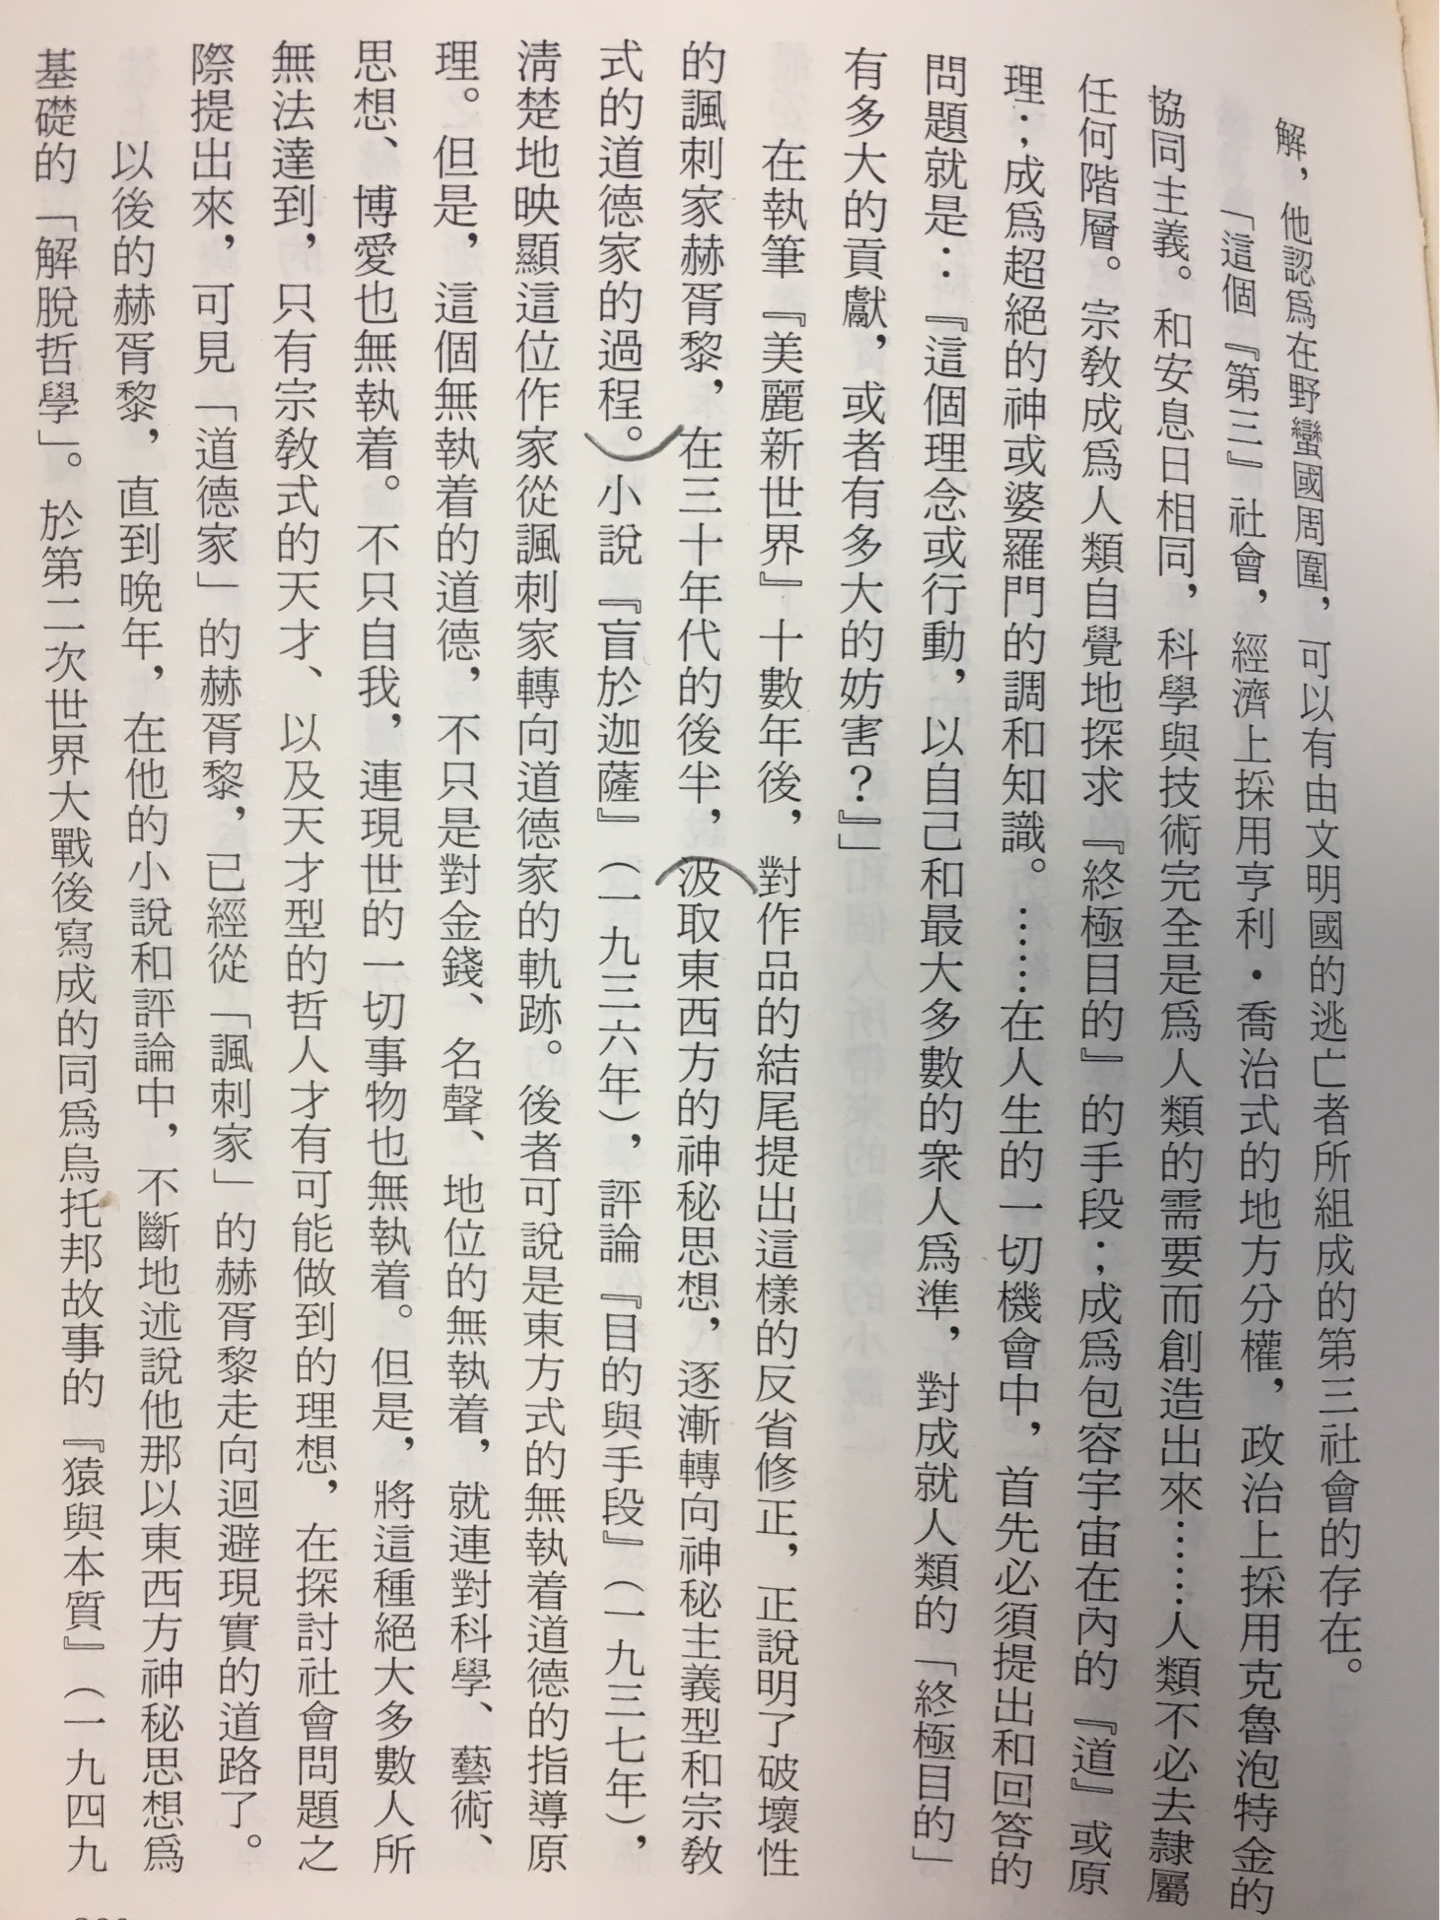 解，他認爲在野蠻國周圍，可以有由文明國的逃亡者所組成的第三社會的存在。
「這個『第三』社會，經濟上採用亨利・喬治式的地方分權，政治上採用克魯泡特金的
協同主義。和安息日相同，科學與技術完全是爲人類的需要而創造出來……人類不必去隷屬
任何階層。宗教成爲人類自覺地探求『終極目的』的手段；成爲包容宇宙在內的『道』或原
理；成爲超絕的神或婆羅門的調和知識。……在人生的一切機會中，首先必須提出和回答的
問題就是：『這個理念或行動，以自己和最大多數的衆人爲準，對成就人類的「終極目的」
有多大的貢獻，或者有多大的妨害？』」
在執筆『美麗新世界』十數年後，對作品的結尾提出這樣的反省修正，正說明了破壞性
的諷刺家赫胥黎，在三十年代的後半，汲取東西方的神秘思想，逐漸轉向神秘主義型和宗敎
式的道德家的過程。小說『盲於迦薩』（一九三六年），評論『目的與手段』（一九三七年），
淸楚地映顯這位作家從諷刺家轉向道德家的軌跡。後者可說是東方式的無執着道德的指導原
理。但是，這個無執着的道德，不只是對金錢、名聲、地位的無執着，就連對科學、藝術、
思想、博愛也無執着。不只自我，連現世的一切事物也無執着。但是，將這種絕大多數人所
無法達到，只有宗敎式的天才、以及天才型的哲人才有可能做到的理想，在探討社會問題之
際提出來，可見「道德家」的赫胥黎，已經從「諷刺家」的赫胥黎走向迴避現實的道路了。
以後的赫胥黎，直到晚年，在他的小說和評論中，不斷地述說他那以東西方神秘思想爲
基礎的「解脫哲學」。於第二次世界大戰後寫成的同爲烏托邦故事的『猿與本質』（一九四九